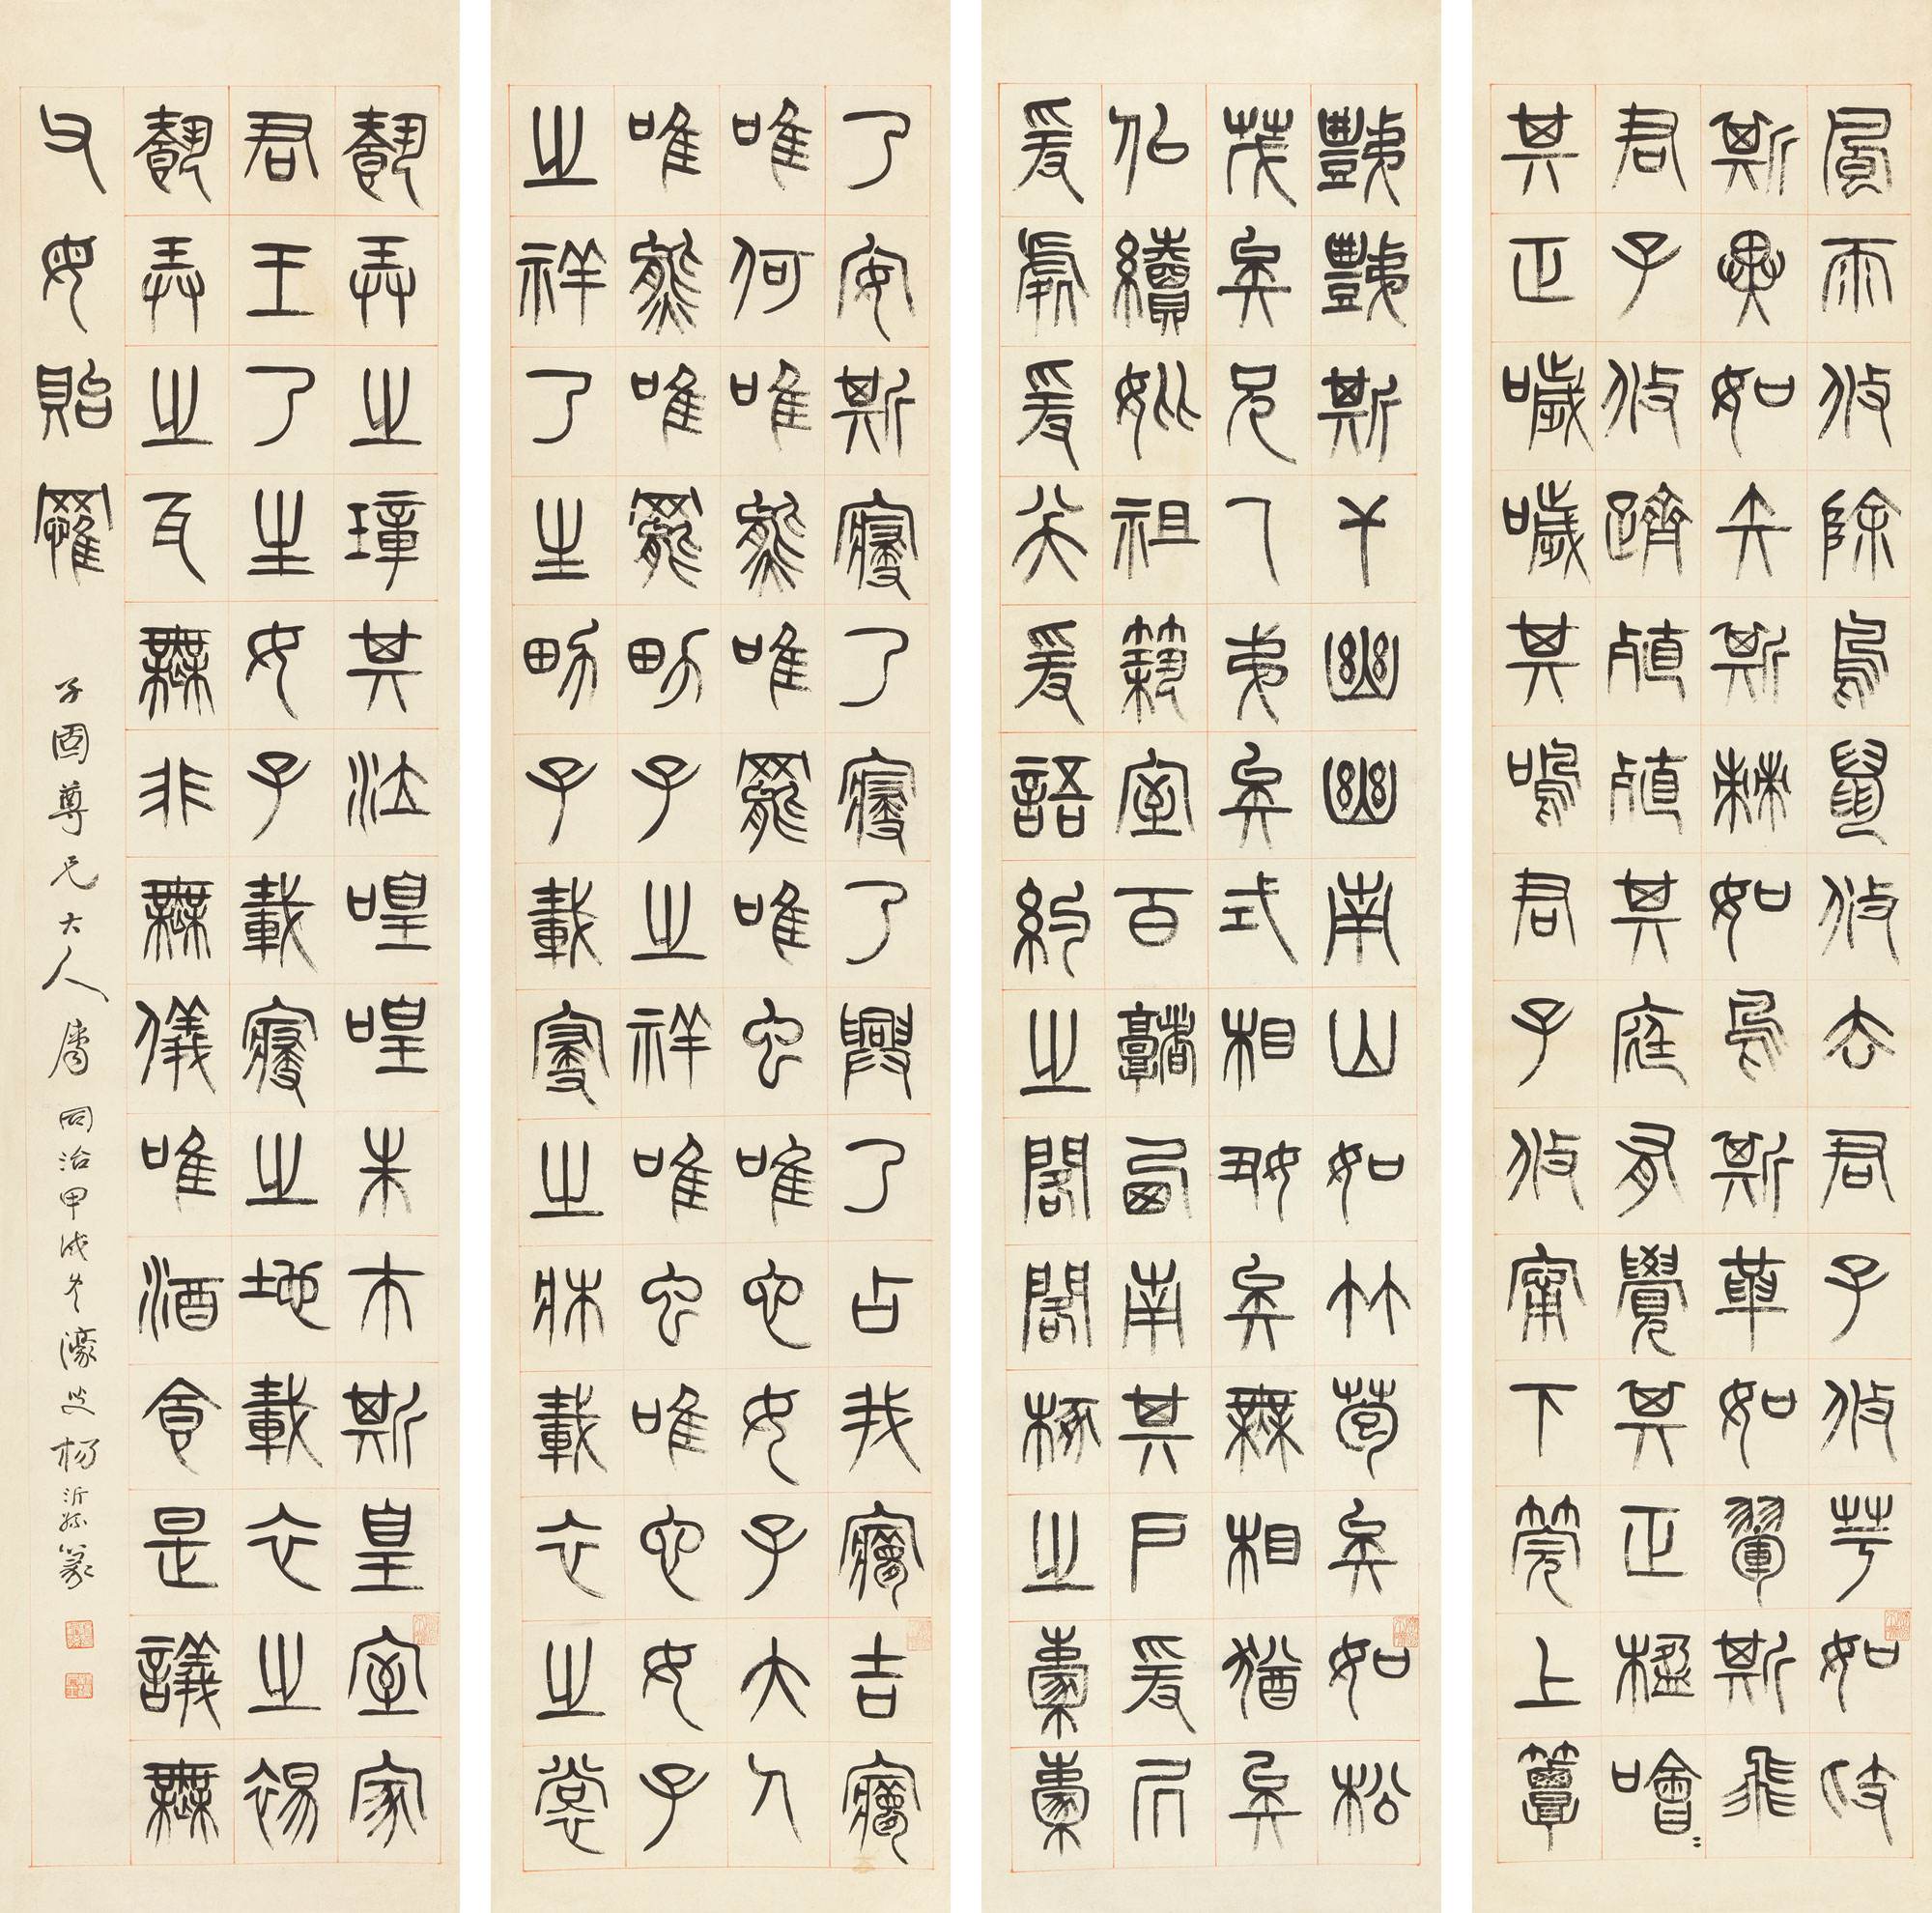 風雨攸除鳥鼠攸去君子攸芋如跂
斯翼如矢斯棘如鳥斯革如翬斯飛
君子攸躋殖殖其庭有覺其正楹噲〻
其正噦噦其鳴君子攸寧下莞上簟
豑豑斯干幽幽南山如竹苞矣如松
茂矣兄及弟矣式相好矣無相猶矣
佀續妣祖築室百堵西南其戶爰凥
爰處爰笑爰語約之閣閣椓之橐橐
乃安斯寢乃寢乃興乃占我夢吉夢
唯何唯熊唯羆唯虫唯它女子大人
唯熊唯羆男子之祥唯虫唯它女子
之祥乃生男子載寢之牀載衣之裳
載弄之璋其泣喤喤朱巿斯皇室家
君王乃生女子載寢之地載衣之裼
載弄之瓦無非無儀唯酒食是議無
父母貽罹
子囿尊兄大人屬 同治甲戌冬 濠叟楊沂孫篆